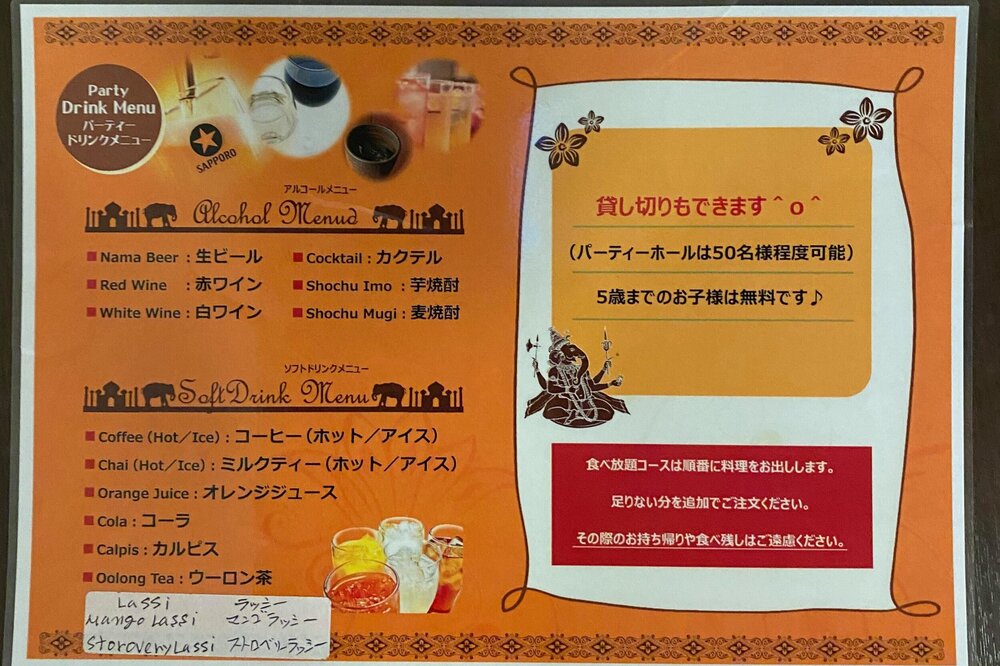 Party
Drink Menu
パーティー
ドリンクメニュー
SAPPORO
アルコールメニュー
Alcohol Menud
Nama Beer : 生ビール
Cocktail : カクテル
Red Wine : 赤ワイン
Shochu Imo : 芋焼酎
White Wine : 白ワイン
Shochu Mugi : 麦焼酎
ソフトドリンクメニュー
SoftDrink Menu
Coffee (Hot／Ice) : コーヒー(ホット／アイス)
Chai (Hot／Ice) : ミルクティー(ホット／アイス)
Orange Juice : オレンジジュース
Cola : コーラ
Calpis : カルピス
Oolong Tea : ウーロン茶
Lassi ラッシー
Mango Lassi マンゴラッシー
Storovery Lassi ストロベリーラッシー
貸し切りもできます＾ｏ＾
(パーティーホールは50名様程度可能)
5歳までのお子様は無料です♪
食べ放題コースは順番に料理をお出しします。
足りない分を追加でご注文ください。
その際のお持ち帰りや食べ残しはご遠慮ください。